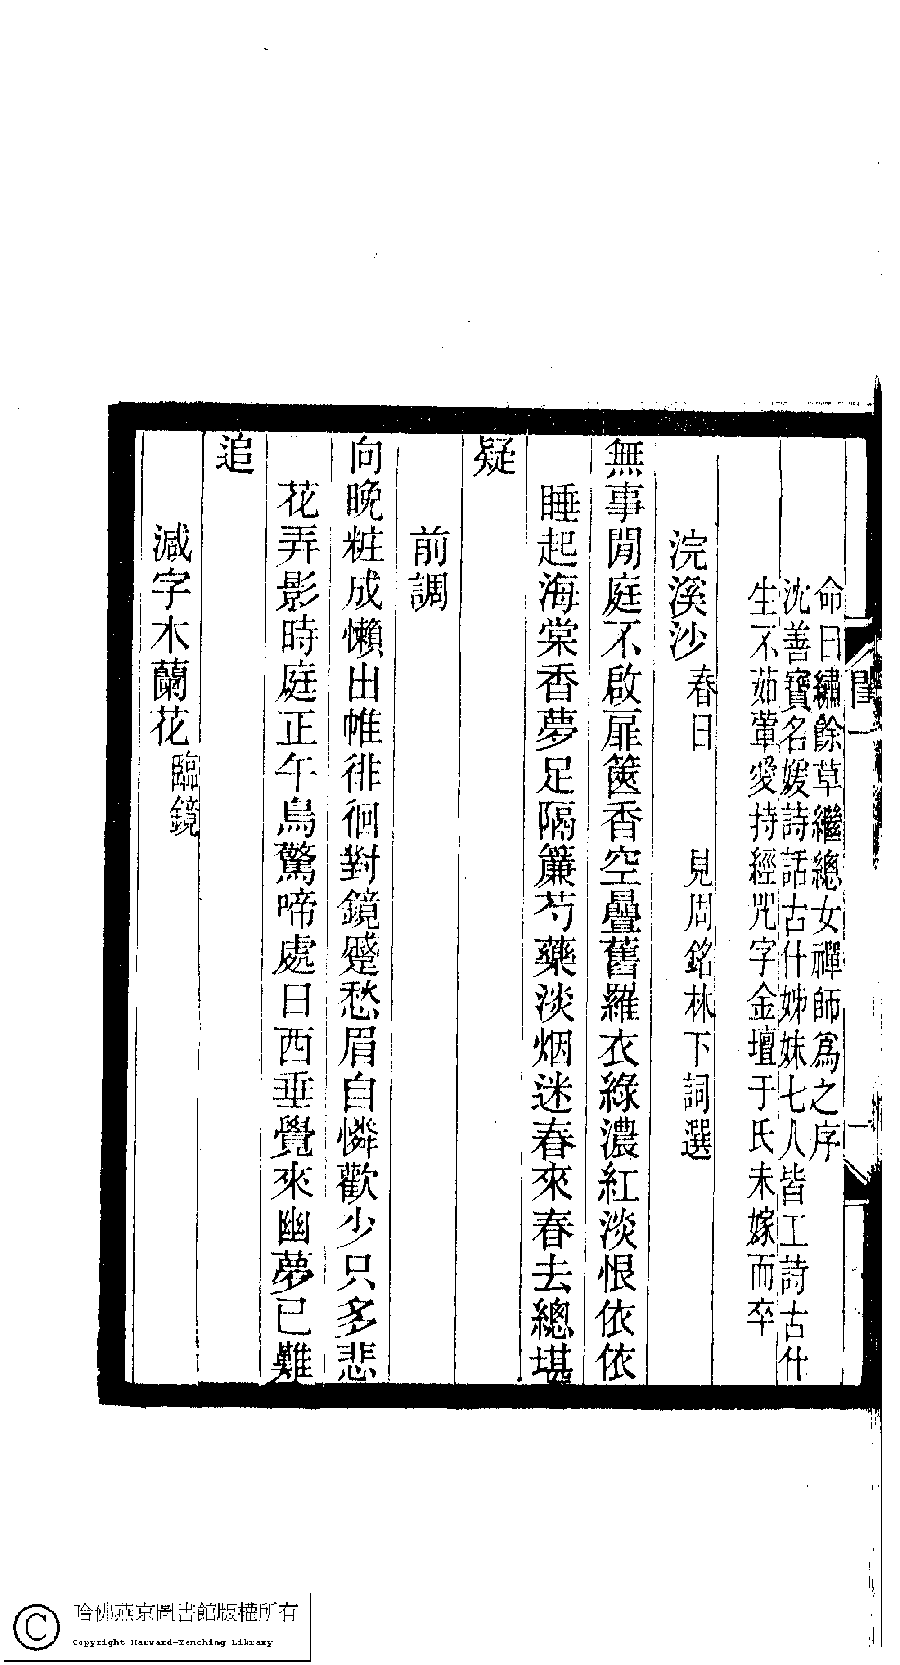 命曰繡餘草繼總女禪師爲之序
沈善寶名媛詩話古什姊妹七人皆工詩古什
生不茹葷愛持經咒字金壇于氏未嫁而卒
浣溪沙 春日 見周銘林下詞選
無事閒庭不啟扉篋香空疊舊羅衣綠濃紅淡恨依依
睡起海棠香夢足隔簾芍藥淡烟迷春來春去總堪
疑
前調
向晚粧成懶出帷徘徊對鏡蹙愁眉自憐歡少只多悲
花弄影時庭正午鳥驚啼處日西垂覺來幽夢已難
追
減字木蘭花 臨鏡
哈佛燕京圖書館版權所有
Copyright Harvard-Yenching Library